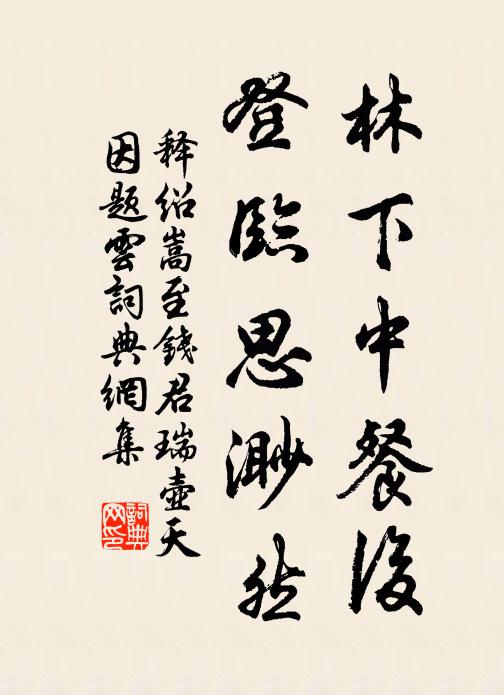 林下中餐後
登臨思渺然
释绍嵩至錢君瑞壶天
因題雲詞典網集
詞典
网印